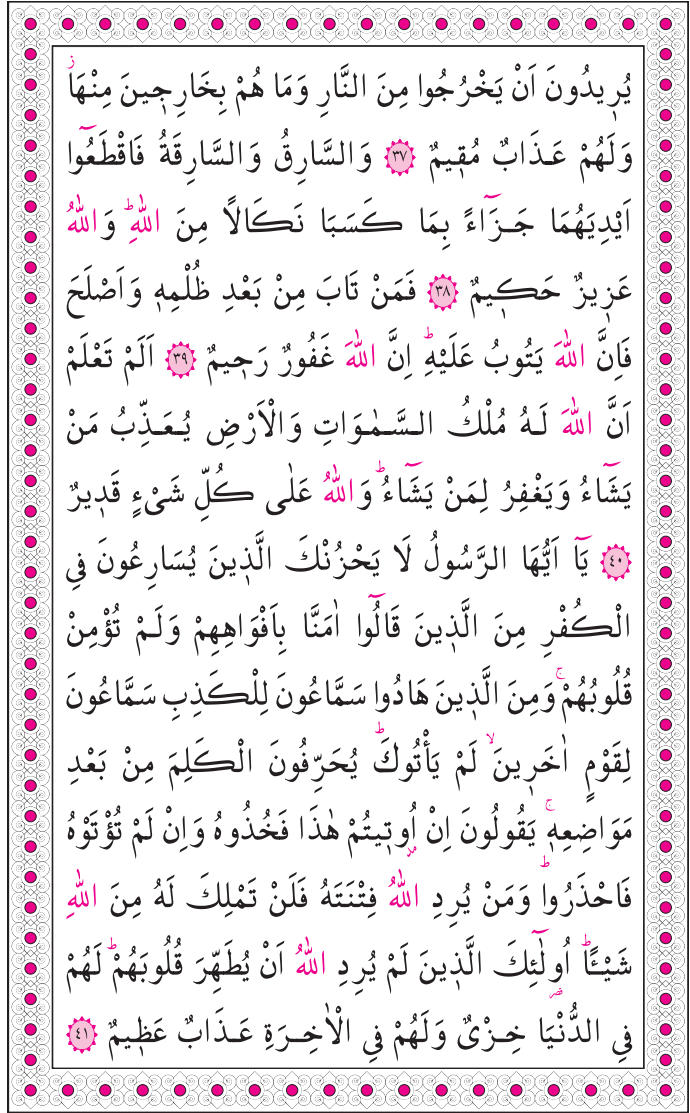 يُرٖيدُونَ اَنْ يَخْرُجُوا مِنَ النَّارِ وَمَا هُمْ بِخَارِجٖينَ مِنْهَاؗ
وَلَهُمْ عَذَابٌ مُقٖيمٌ ﴿٣٧﴾ وَالسَّارِقُ وَالسَّارِقَةُ فَاقْطَعُٓوا
اَيْدِيَهُمَا جَزَٓاءً بِمَا كَسَبَا نَكَالًا مِنَ اللّٰهِؕ وَاللّٰهُ
عَزٖيزٌ حَكٖيمٌ ﴿٣٨﴾ فَمَنْ تَابَ مِنْ بَعْدِ ظُلْمِهٖ وَاَصْلَحَ
فَاِنَّ اللّٰهَ يَتُوبُ عَلَيْهِؕ اِنَّ اللّٰهَ غَفُورٌ رَحٖيمٌ ﴿٣٩﴾ اَلَمْ تَعْلَمْ
اَنَّ اللّٰهَ لَهُ مُلْكُ السَّمٰوَاتِ وَالْاَرْضِ يُعَذِّبُ مَنْ
يَشَٓاءُ وَيَغْفِرُ لِمَنْ يَشَٓاءُؕ وَاللّٰهُ عَلٰى كُلِّ شَىْءٍ قَدٖيرٌ
﴿٤٠﴾ يَٓا اَيُّهَا الرَّسُولُ لَا يَحْزُنْكَ الَّذٖينَ يُسَارِعُونَ فِي
الْكُفْرِ مِنَ الَّذٖينَ قَالُٓوا اٰمَنَّا بِاَفْوَاهِهِمْ وَلَمْ تُؤْمِنْ
قُلُوبُهُمْۚ وَمِنَ الَّذٖينَ هَادُوا سَمَّاعُونَ لِلْكَذِبِ سَمَّاعُونَ
لِقَوْمٍ اٰخَرٖينَۙ لَمْ يَأْتُوكَؕ يُحَرِّفُونَ الْكَلِمَ مِنْ بَعْدِ
مَوَاضِعِهٖۚ يَقُولُونَ اِنْ اُوتٖيتُمْ هٰذَا فَخُذُوهُ وَاِنْ لَمْ تُؤْتَوْهُ
فَاحْذَرُواؕ وَمَنْ يُرِدِ اللّٰهُ فِتْنَتَهُ فَلَنْ تَمْلِكَ لَهُ مِنَ اللّٰهِ
شَيْـًٔاؕ اُولٰٓئِكَ الَّذٖينَ لَمْ يُرِدِ اللّٰهُ اَنْ يُطَهِّرَ قُلُوبَهُمْؕ لَهُمْ
فِي الدُّنْيَا خِزْىٌ وَلَهُمْ فِي الْاٰخِرَةِ عَذَابٌ عَظٖيمٌ ﴿٤١﴾